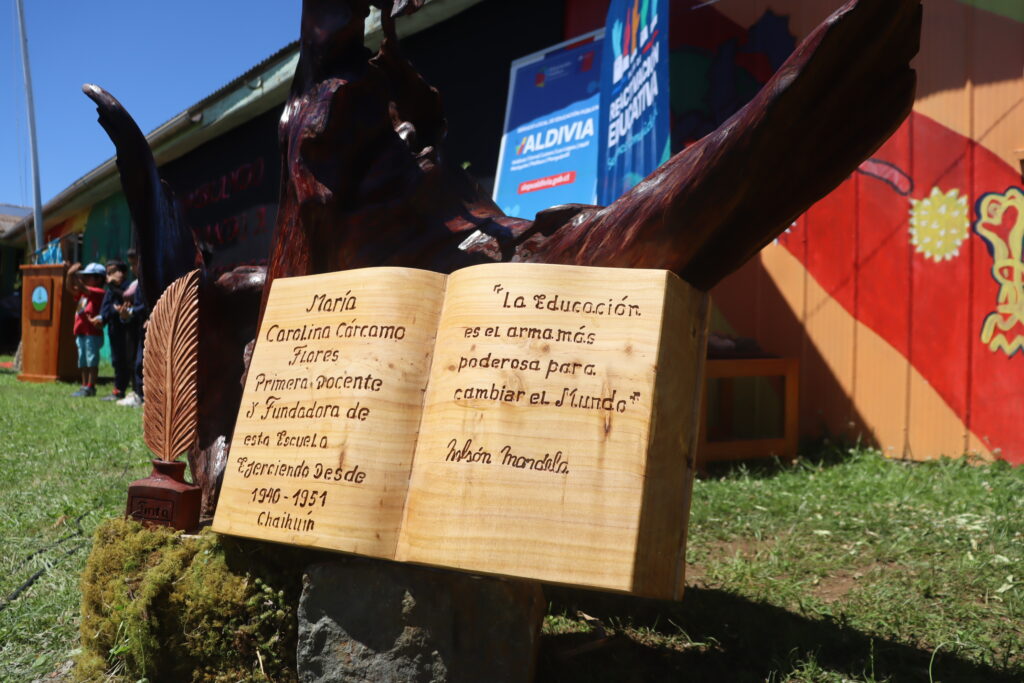 María
Carolina Cárcamo
Flores
Primera Docente
Y Fundadora de
esta Escuela
Ejerciendo Desde
1940 - 1951
Chaihuín
"La Educación
es el arma más
poderosa para
cambiar el Mundo"
Nelsón Mandela
Tinta
VALDIVIA
REACTIVACIÓN
EDUCATIVA